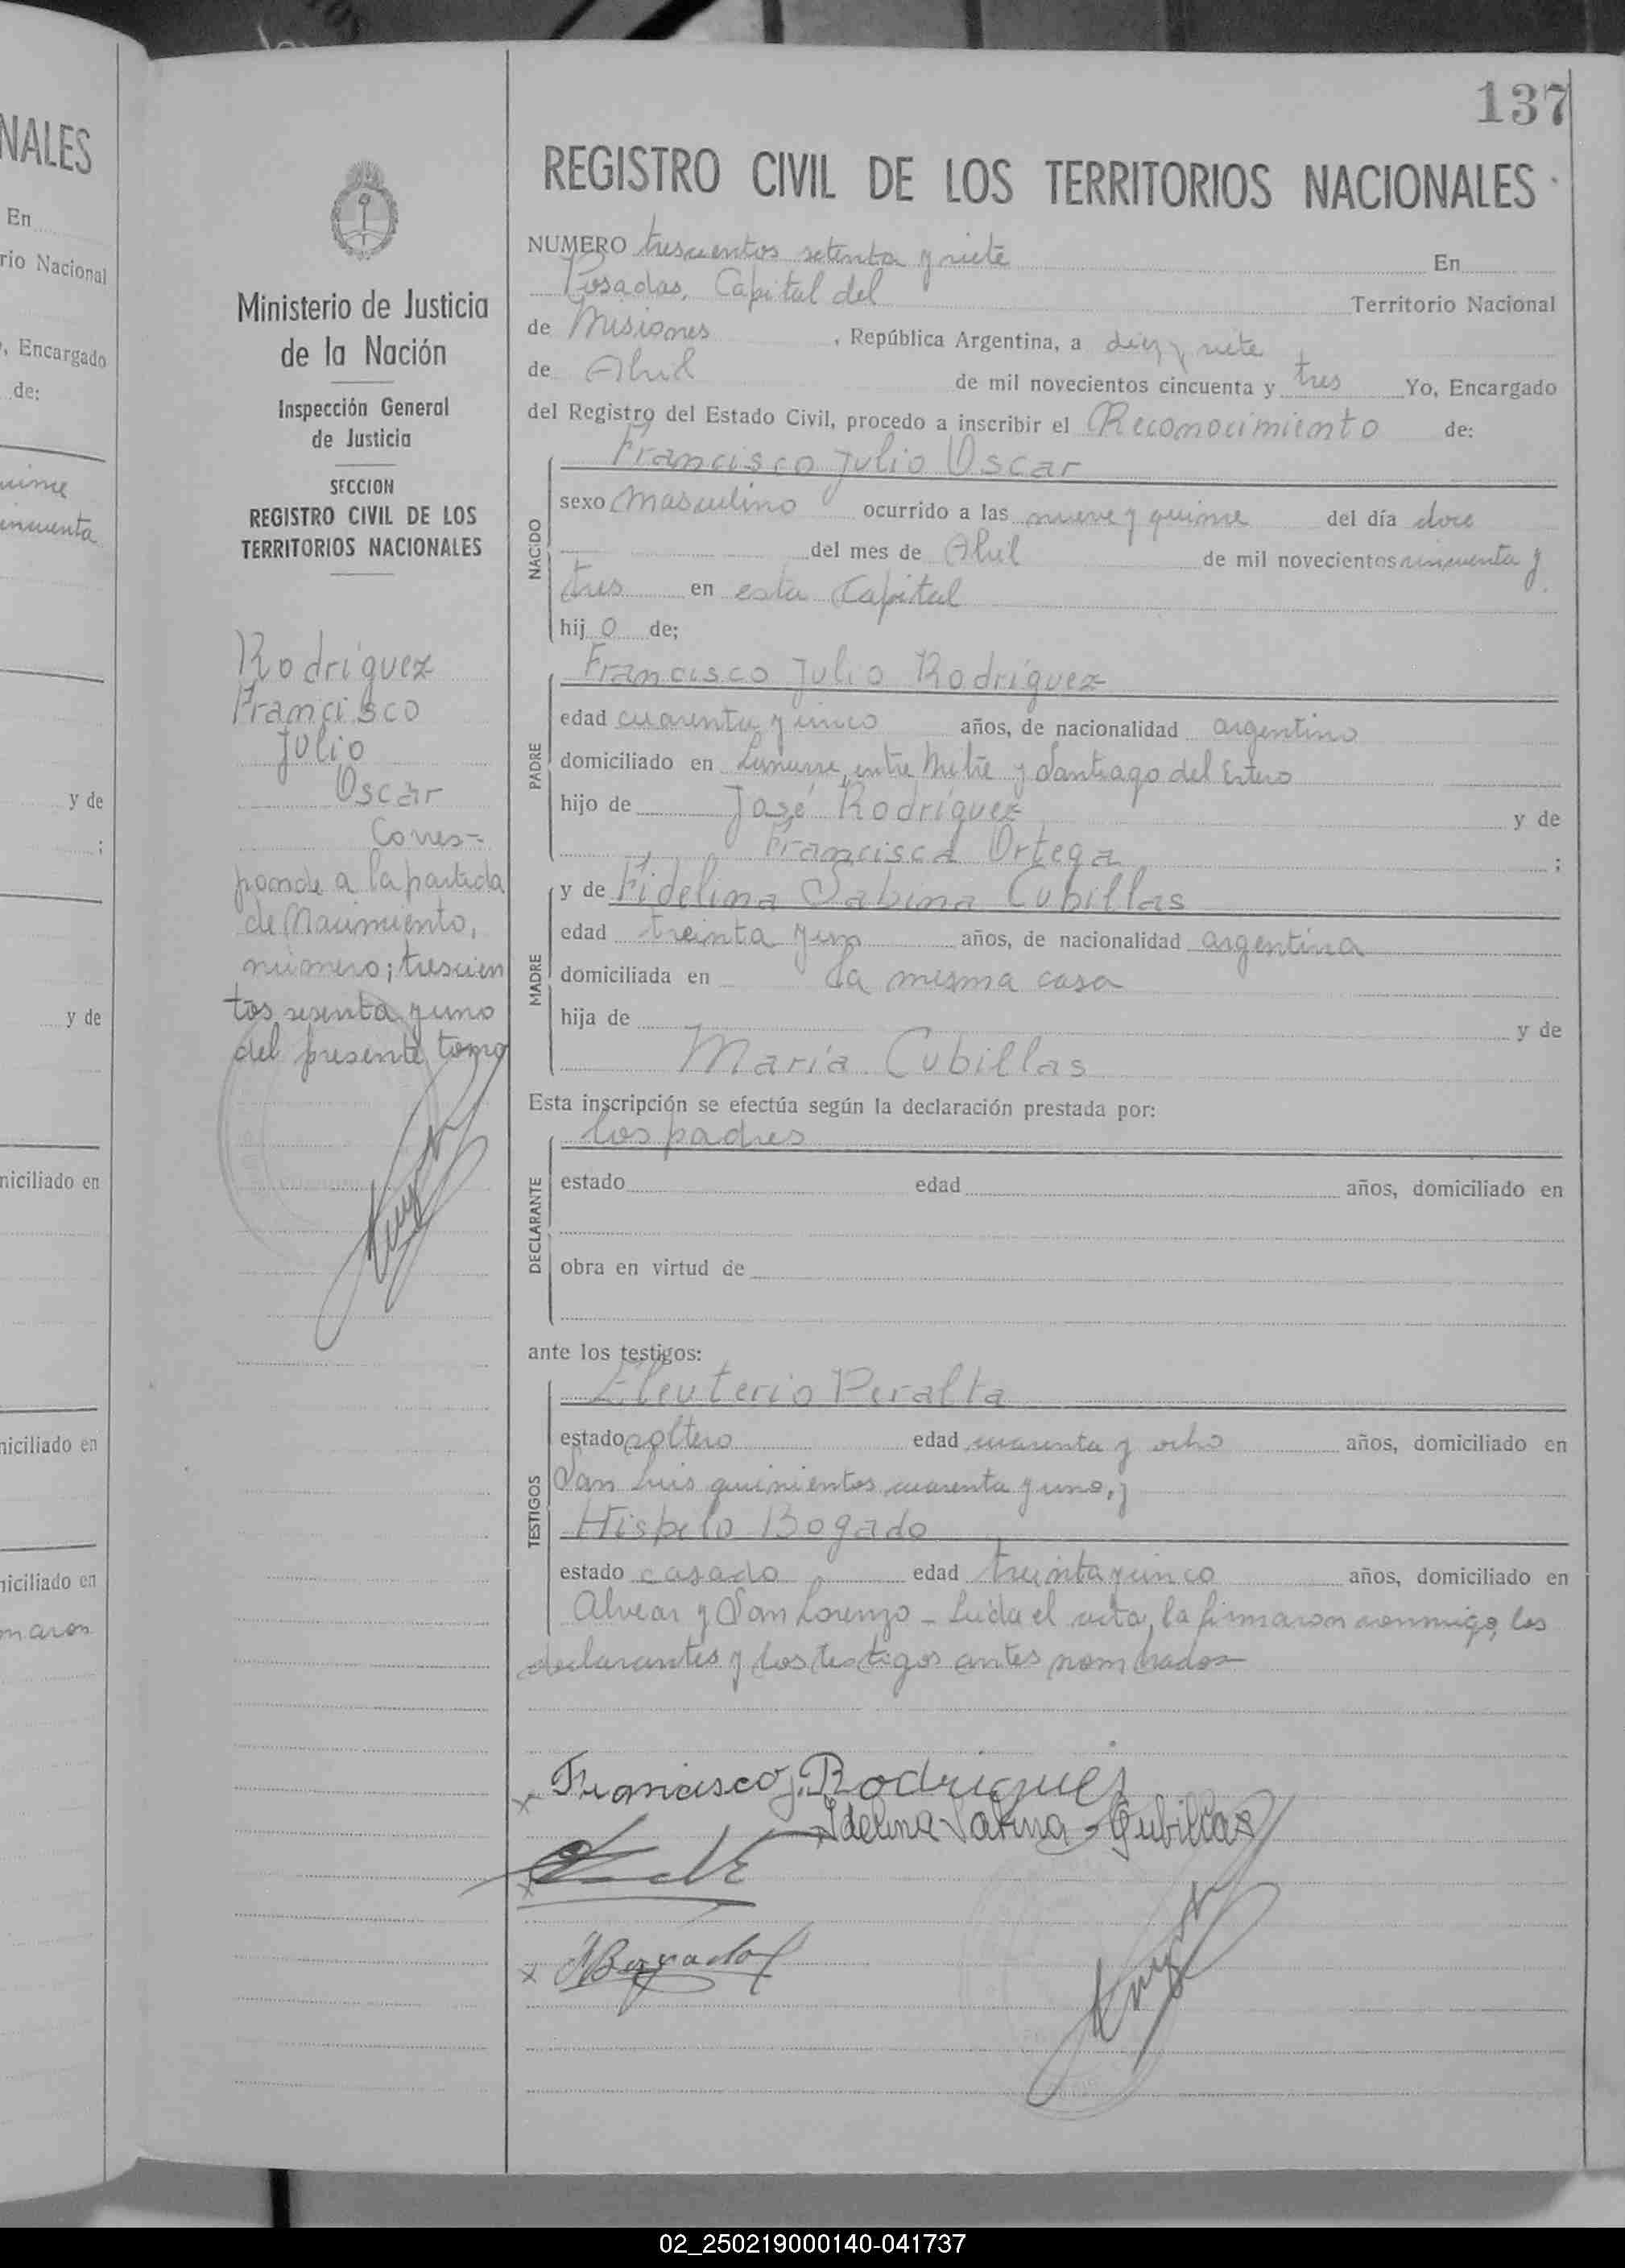 137
NALES
En
rio Nacional
, Encargado
de:
y de
;
y de
miciliado en
miciliado en
miciliado en
maron
Ministerio de Justicia
de la Nación
Inspección General
de Justicia
SECCION
REGISTRO CIVIL DE LOS
TERRITORIOS NACIONALES
Rodríguez
Francisco
Julio
Oscar
Corres=
ponde a la partida
de Nacimiento,
número; trescien
tos sesenta y uno
del presente tomo
REGISTRO CIVIL DE LOS TERRITORIOS NACIONALES
NUMERO trescientos setenta y siete En
Posadas, Capital del Territorio Nacional
de Misiones, República Argentina, a diez y siete
de Abril de mil novecientos cincuenta y tres Yo, Encargado
del Registro del Estado Civil, procedo a inscribir el Reconocimiento de:
Francisco Julio Oscar
NACIDO
sexo masculino ocurrido a las nueve y quince del día doce
del mes de Abril de mil novecientos cincuenta y
tres en esta Capital
hij o de;
Francisco Julio Rodríguez
PADRE
edad cuarenta y cinco años, de nacionalidad argentino
domiciliado en entre Mitre y Santiago del Estero
hijo de José Rodríguez y de
Francisca Ortega ;
y de Fidelina Sabina Cubillas
MADRE
edad treinta y un años, de nacionalidad argentina
domiciliada en la misma casa
hija de y de
María Cubillas
Esta inscripción se efectúa según la declaración prestada por:
los padres
DECLARANTE
estado edad años, domiciliado en
obra en virtud de
ante los testigos:
Eleuterio Peralta
TESTIGOS
estado soltero edad cuarenta y ocho años, domiciliado en
San Luis quinientos cuarenta y uno, y
Hispelo Bogado
estado casado edad treinta y cinco años, domiciliado en
Alvear y San Lorenzo - Leída el acta, la firmaron conmigo, los
declarantes y los testigos antes nombrados
x Francisco J. Rodrigues
Fidelina Sabina Cubillas
x
x HBogado
02_250219000140-041737